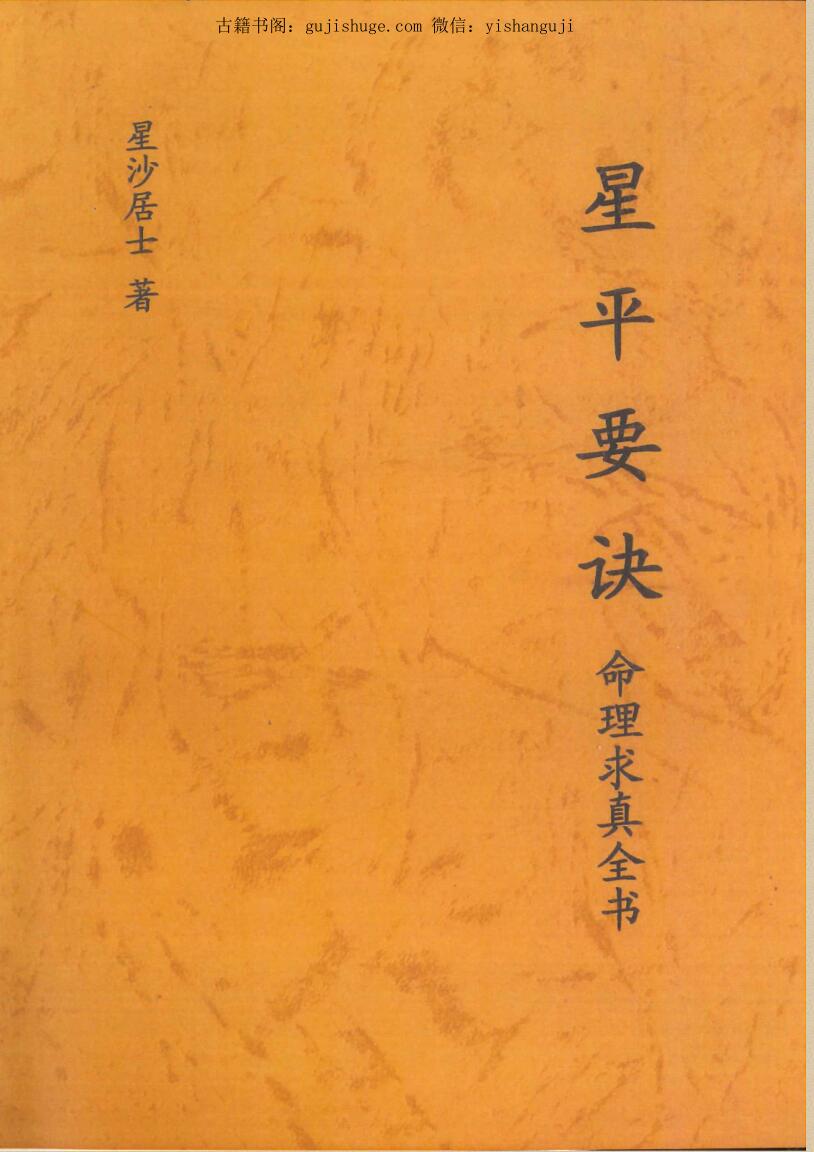 古籍书阁：gujishuge.com 微信：yishanguji
星平要诀 命理求真全书
星沙居士 著